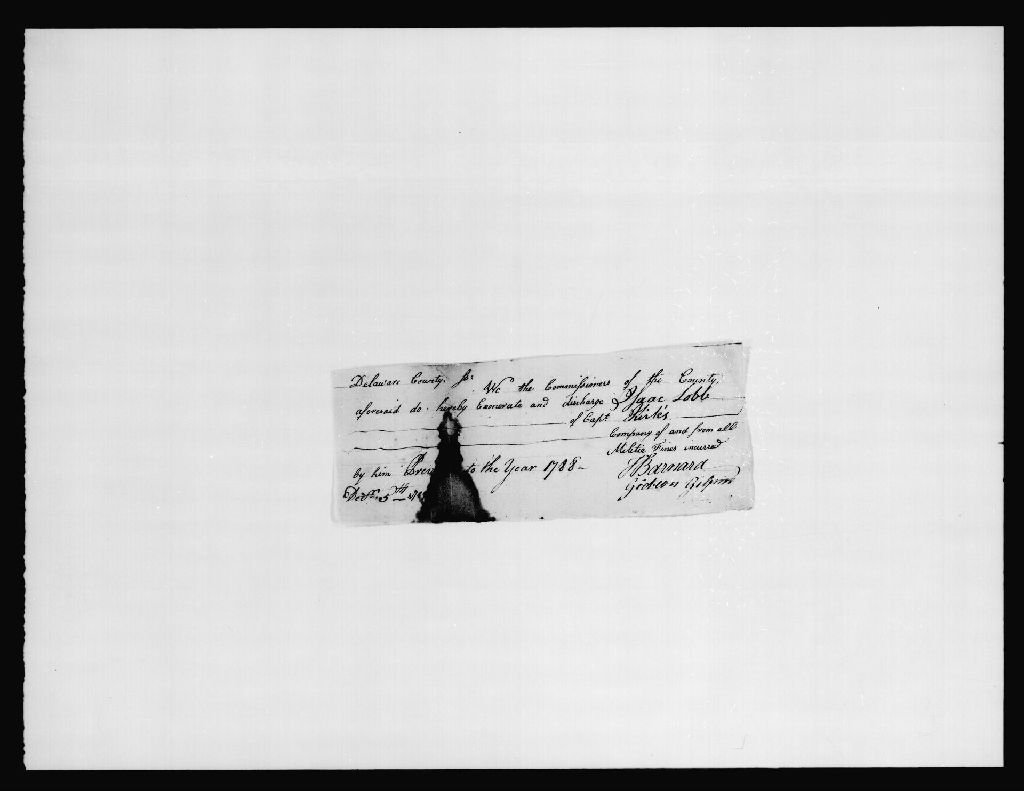 Delaware County, Ss. We the Commissioners of the County,
aforesaid do hereby Exonerate and discharge Isaac Lobb
of Capt. Kirk's
Company of and from all
Militia Fines incurred
by him to the Year 1788
5th
J Barnard
Gideon Gilpin